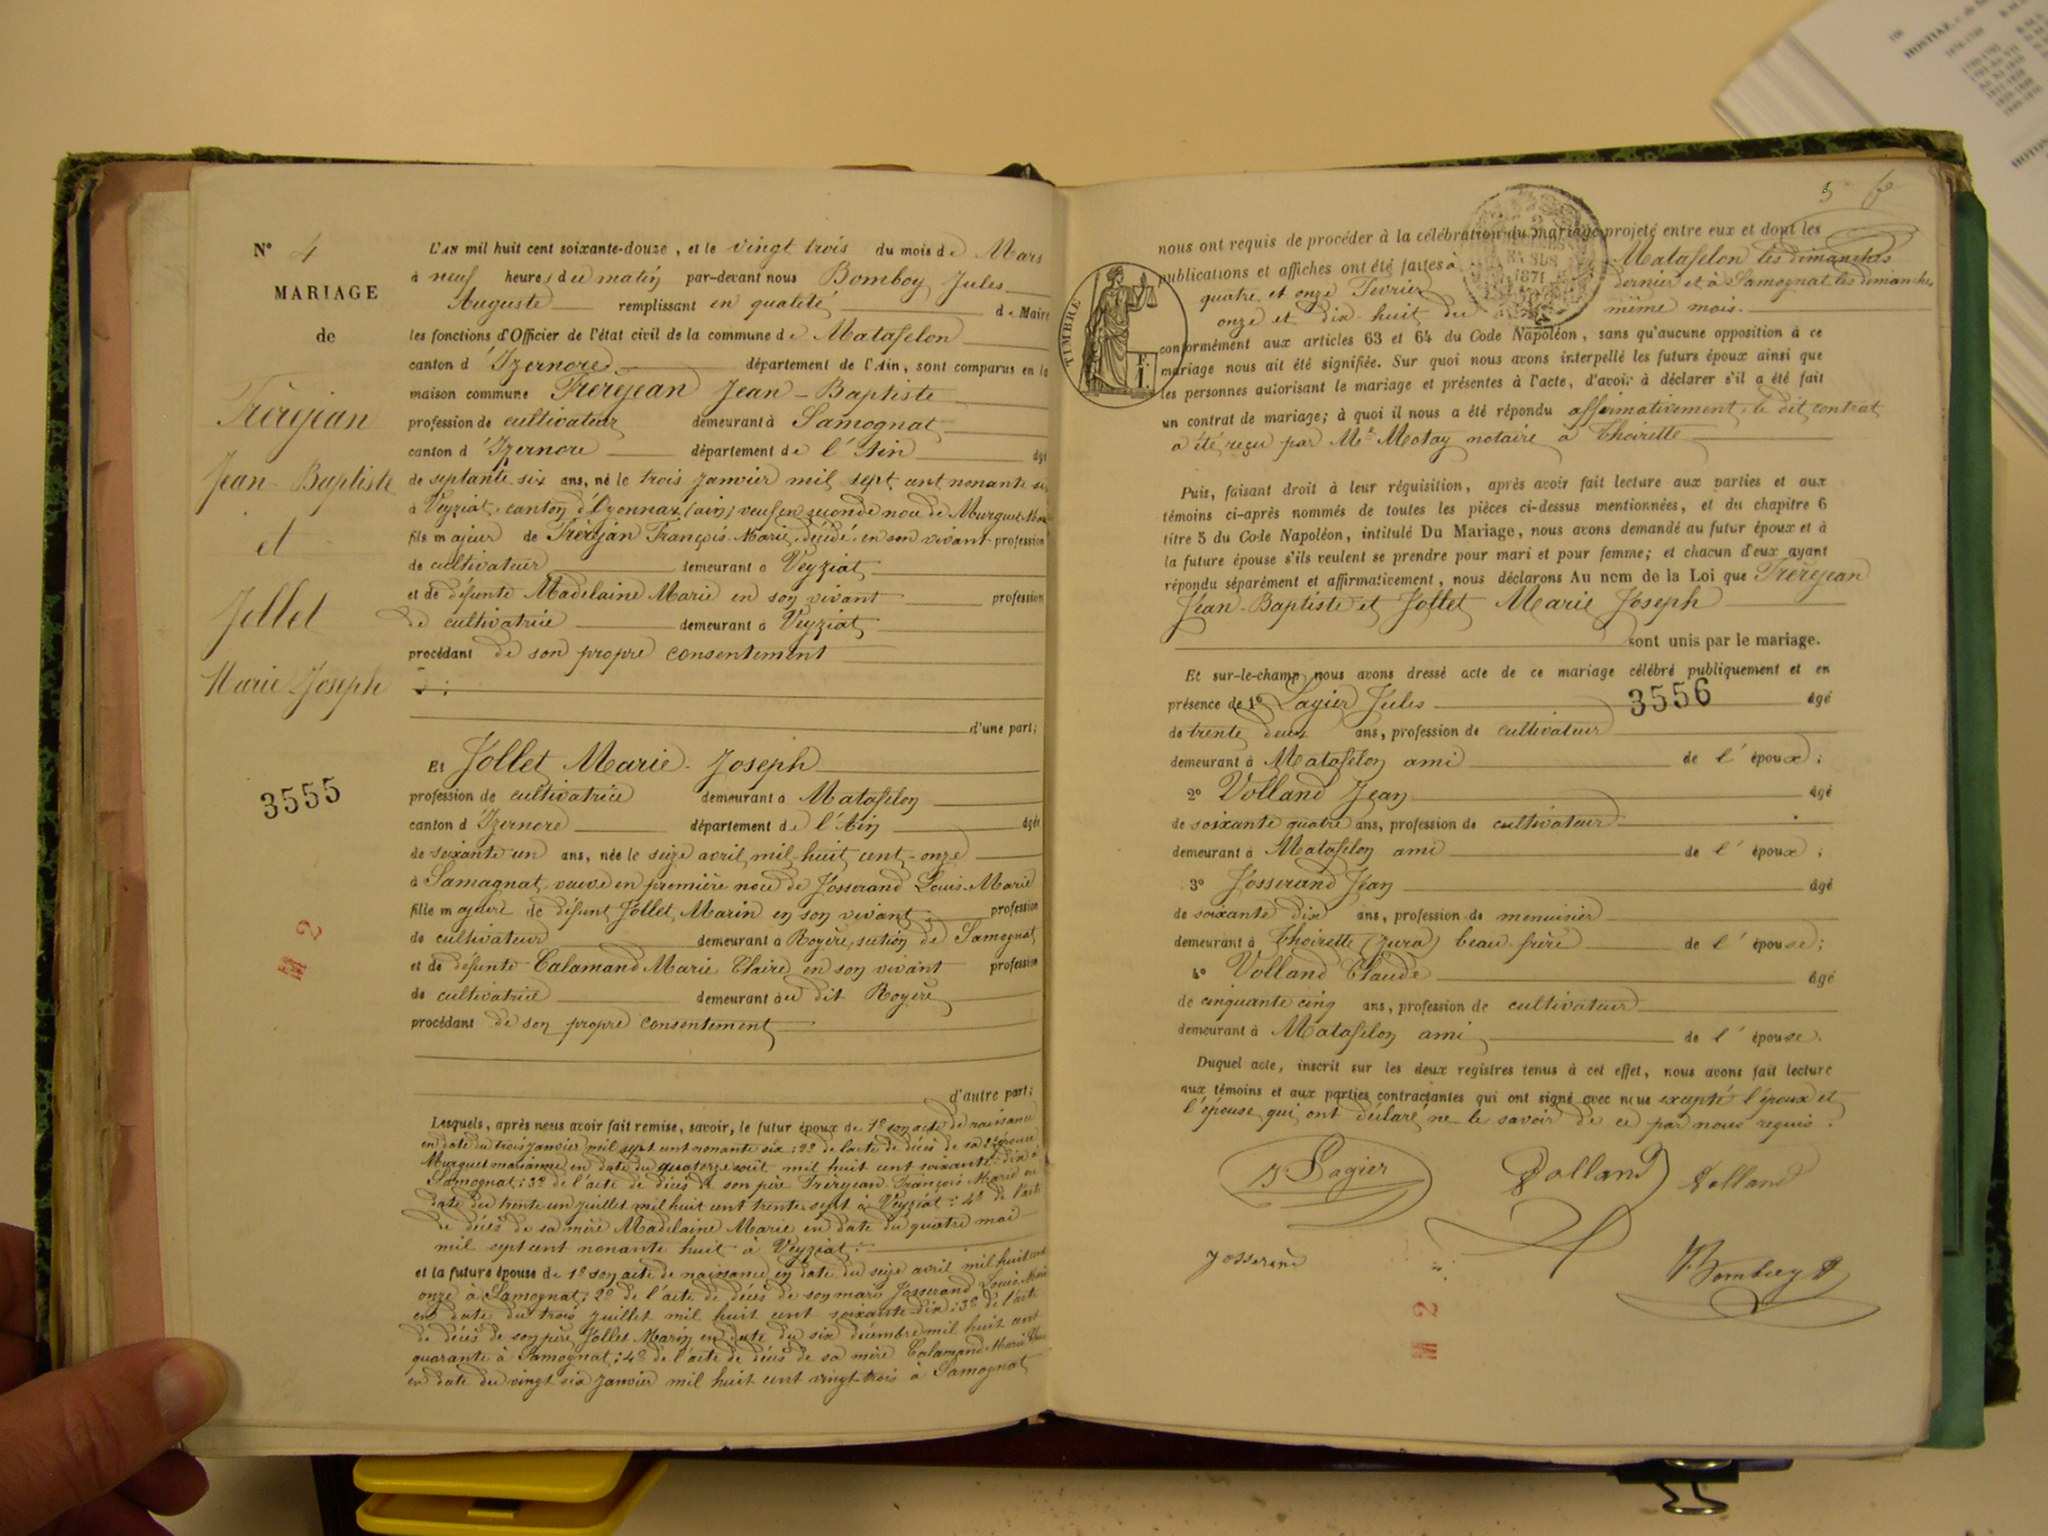 N° 4
MARIAGE
de
Frèrejean
Jean-Baptiste
et
Jollet
Marie Joseph
3555
M 2
L'AN mil huit cent soixante-douze, et le vingt trois du mois de Mars
à neuf heures du matin par-devant nous Bomboy Jules
Auguste remplissant en qualité de Maire
les fonctions d'Officier de l'état civil de la commune de Matafelon
canton d'Izernore département de l'Ain, sont comparus en la
maison commune Frèrejean Jean-Baptiste
profession de cultivateur demeurant à Samognat
canton d'Izernore département de l'Ain âgé
de septante six ans, né le trois Janvier mil sept cent nonante six
à Veyziat, canton d'Oyonnax (ain) veuf en seconde noce de Murguet
fils majeur de Frèrejean François-Marie, décédé, en son vivant profession
de cultivateur demeurant à Veyziat
et de défunte Madelaine Marie en son vivant profession
de cultivatrice demeurant à Veyziat
procédant de son propre consentement
d'une part;
Et Jollet Marie-Joseph
profession de cultivatrice demeurant à Matafelon
canton d'Izernore département de l'Ain âgée
de soixante un ans, née le seize avril mil-huit cent-onze
à Samagnat, veuve en première noce de Josserand Louis-Marie
fille majeure de défunt Jollet Marin en son vivant profession
de cultivateur demeurant à Royère, section de Samognat
et de défunte Calamand Marie Claire en son vivant profession
de cultivatrice demeurant au dit Royère
procédant de son propre consentement
d'autre part;
Lesquels, après nous avoir fait remise, savoir, le futur époux de 1° son acte de naissance
en date du trois Janvier mil sept cent nonante six; 2° de l'acte de décès de sa 2e épouse
Murguet marianne en date du quatorze août mil huit cent soixante-dix à
Samognat; 3° de l'acte de décès de son père Frèrejean François Marie en
date du trente un juillet mil huit cent trente sept à Veyziat; 4° de l'acte
de décès de sa mère Madelaine Marie en date du quatre mai
mil sept cent nonante huit à Veyziat;
et la future épouse de 1° son acte de naissance en date du seize avril mil huit cent
onze à Samognat; 2° de l'acte de décès de son mari Josserand Louis-Marie
en date du trois juillet mil huit cent soixante-dix; 3° de l'acte
de décès de son père Jollet Marin en date du six décembre mil huit cent
quarante à Samognat; 4° de l'acte de décès de sa mère Calamand Marie
en date du vingt six Janvier mil huit cent vingt-trois à Samognat
5
nous ont requis de procéder à la célébration du mariage projeté entre eux et dont les
publications et affiches ont été faites à Matafelon les dimanches
quatre et onze Février dernier et à Samognat les dimanches
onze et dix-huit du même mois.
1871
TIMBRE
conformément aux articles 63 et 64 du Code Napoléon, sans qu'aucune opposition à ce
mariage nous ait été signifiée. Sur quoi nous avons interpellé les futurs époux ainsi que
les personnes autorisant le mariage et présentes à l'acte, d'avoir à déclarer s'il a été fait
un contrat de mariage; à quoi il nous a été répondu affirmativement, le dit contrat
a été reçu par Me Motay notaire à Thoirette
Puis, faisant droit à leur réquisition, après avoir fait lecture aux parties et aux
témoins ci-après nommés de toutes les pièces ci-dessus mentionnées, et du chapitre 6
titre 5 du Code Napoléon, intitulé Du Mariage, nous avons demandé au futur époux et à
la future épouse s'ils veulent se prendre pour mari et pour femme; et chacun d'eux ayant
répondu séparément et affirmativement, nous déclarons Au nom de la Loi que Frèrejean
Jean-Baptiste et Jollet Marie Joseph
sont unis par le mariage.
Et sur-le-champ nous avons dressé acte de ce mariage célébré publiquement et en
présence de 1° Lagier Jules 3556 âgé
de trente deux ans, profession de cultivateur
demeurant à Matafelon ami de l'époux;
2° Volland Jean âgé
de soixante quatre ans, profession de cultivateur
demeurant à Matafelon ami de l'époux;
3° Josserand Jean âgé
de soixante dix ans, profession de menuisier
demeurant à Thoirette (Jura) beau-frère de l'épouse;
4° Volland Claude âgé
de cinquante cinq ans, profession de cultivateur
demeurant à Matafelon ami de l'épouse.
Duquel acte, inscrit sur les deux registres tenus à cet effet, nous avons fait lecture
aux témoins et aux parties contractantes qui ont signé avec nous excepté l'époux et
l'épouse qui ont déclaré ne le savoir de ce par nous requis.
J Lagier
Volland
Volland
Josserand
Bomboy
M 2